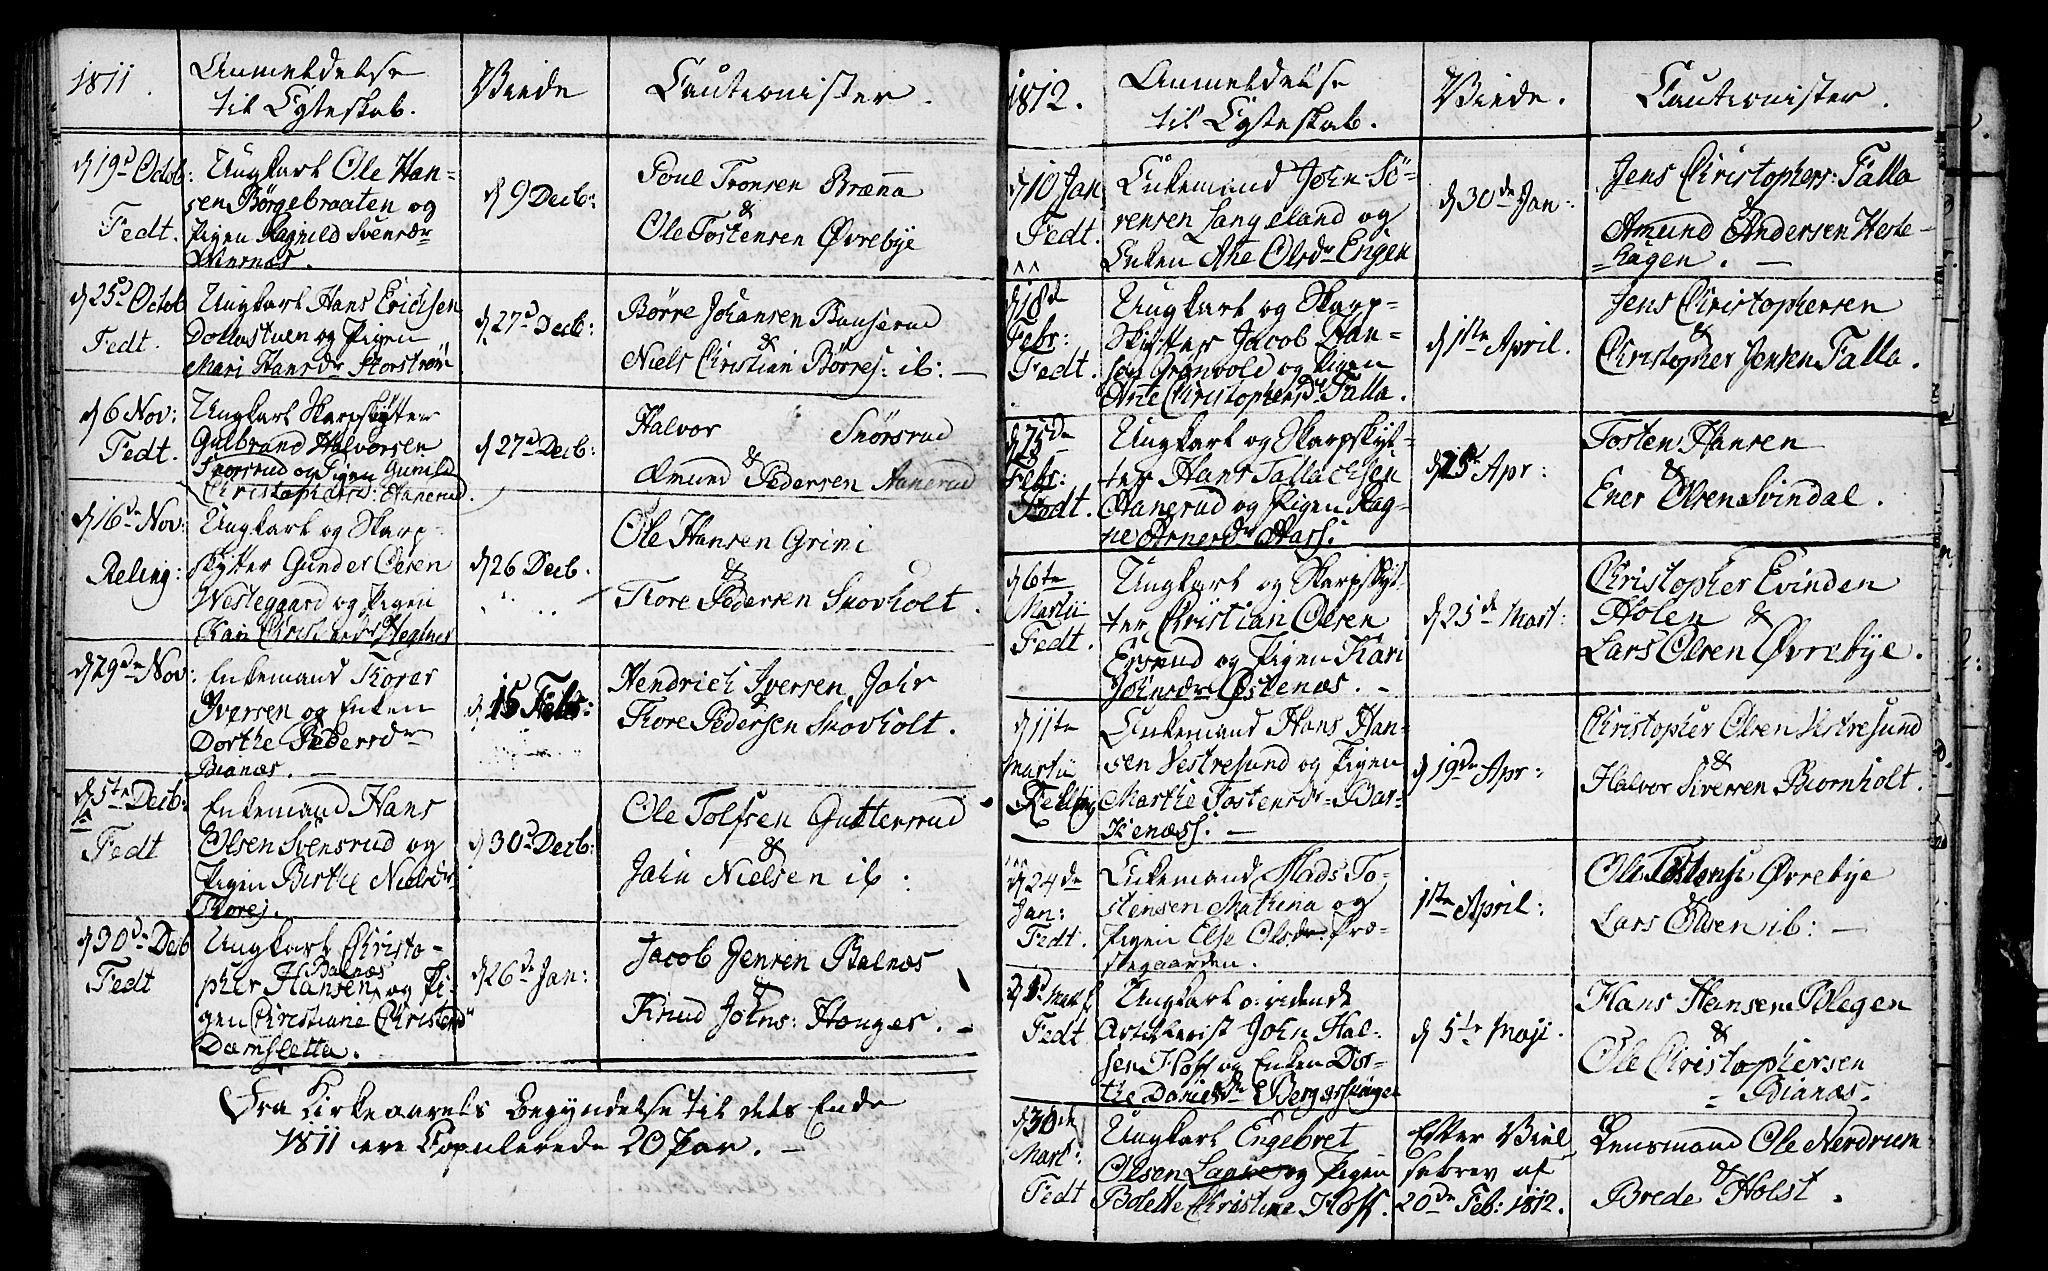 1811.
Anmeldelse
til Egteskab.
Viede
Cautionister.
d 19d Octob:
Fedt.
Ungkarl Ole Han-
sen Børgebraaten og
Pigen Ragnild Svensdr
d 9 Decb:
Poul Tronsen Brænna
&
Ole Tostensen Øvrebye
d 25d Octob
Fedt.
Ungkarl Hans Erichsen
Dollastuen og Pigen
Mari Hansdr Storstrøm
d 27d Decb:
Børre Johansen Bauserud
&
Niels Christian Børres: ib: —
d 6 Nov:
Fedt.
Ungkarl Skarpskytter
Gulbrand Halvorsen
Snorsrud og Pigen Gunild
Christophers: Aanerud.
d 27d Decb:
Halvor Snorsrud
&
Amund Pedersen Aanerud
d 16de Nov:
Reling:
Ungkarl og Skarp-
skytter Gunder Olsen
Westegaard og Pigen
Kari
d 26 Decb.
Ole Hansen Grini
&
Thore Pedersen Skovholt.
d 29de Nov:
Enkemand Thores
Iversen og Enken
Dorthe Pedersdr
Bianæs. —
d 15 Febr:
Hendrich Iversen Jahr
&
Thore Pedersen Skovholt.
d 5te Decb:
Fedt
Enkemand Hans
Olsen Svensrud og
Pigen Birthe Nielsdr
Thorej.
d 30d Decb:
Ole Tolfsen Guttersrud
&
John Nielsen ib:
d 30de Decb
Fedt
Ungkarl Christo-
Balnæs
pher Hansen og Pi-
gen Christiane Christensdr
Damsletta.
d 26de Jan:
Jacob Jensen Balnæs
&
Knud Johns: Hauger. —
Fra Kirkeaarets Begyndelse til dets Ende
1811 ere Copulerede 20 Par. —
1812.
Anmeldelse
til Egteskab.
Viede.
Cautionister.
d 10 Jan
Fedt.
Enkemand John Sö-
rensen Langeland og
Enken Ane Olsdr Engen
d 30de Jan:
Jens Christophers: Talla
&
Amund Andersen Heste-
hagen. —
d 18de
Febr:
Fedt.
Ungkarl og Skarp-
skytter Jacob Han-
sen Grönvold og Pigen
Ane Christophersdr Talla.
d 1ste April.
Jens Christophersen
&
Christopher Jensen Talla.
d 25de
Febr:
Fedt.
Ungkarl og Skarpskyt-
ter Hans Tallachsen
Aanerud og Pigen Rag-
ne Arnesdr Aass.
d 15 Apr:
Tosten Hansen
&
Ener Olsen Svindal.
d 6te
Martii
Fedt.
Ungkarl og Skarpskyt-
ter Christian Olsen
og Pigen Kari
Johnsdr Østenæs. -
d 25de Mart:
Christopher Evinden
Holen &
Lars Olsen Øvrebye.
d 11te
Martii
Reling
Enkemand Hans Han-
sen Vestresund og Pigen
Marthe Tostensdr Bar-
kenæss. —
d 19de Apr:
Christopher Olsen Vestresund
&
Halvor Siversen Biornholt.
d 24de
Jan:
Fedt.
Enkemand Mads To-
stensen Mathina og
Pigen Else Olsdr Præ-
stegaarden.
1ste April:
Ole Tostens: Øvrebye
&
Lars Olsen ib: —
Fedt
Ungkarl o: ridende
Artillerist John Hal-
sen Hoff og Enken Dor-
the Danielsdr Bergerslangen
d 5te Maji.
Hans Hansen Blegen
&
Ole Christophersen
= Bianæs =
d 30de
Mart:
Fedt
Ungkarl Engebret
Olsen og Pigen
Bolette Christine Hoff.
Efter Viel
sebrev af
20de Feb: 1812.
Lensmand Ole Nerdrum
&
Brede Holst.